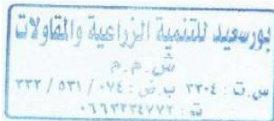 بورسعيد للتنمية الزراعية والمقاولات
ش.م.م
س.ت : ٣٣٠٤ ب.ض : ٣٣٢ / ٥٣١ / ٠٧٤
ت : ٠٦٦٣٢٣٤٧٧٢